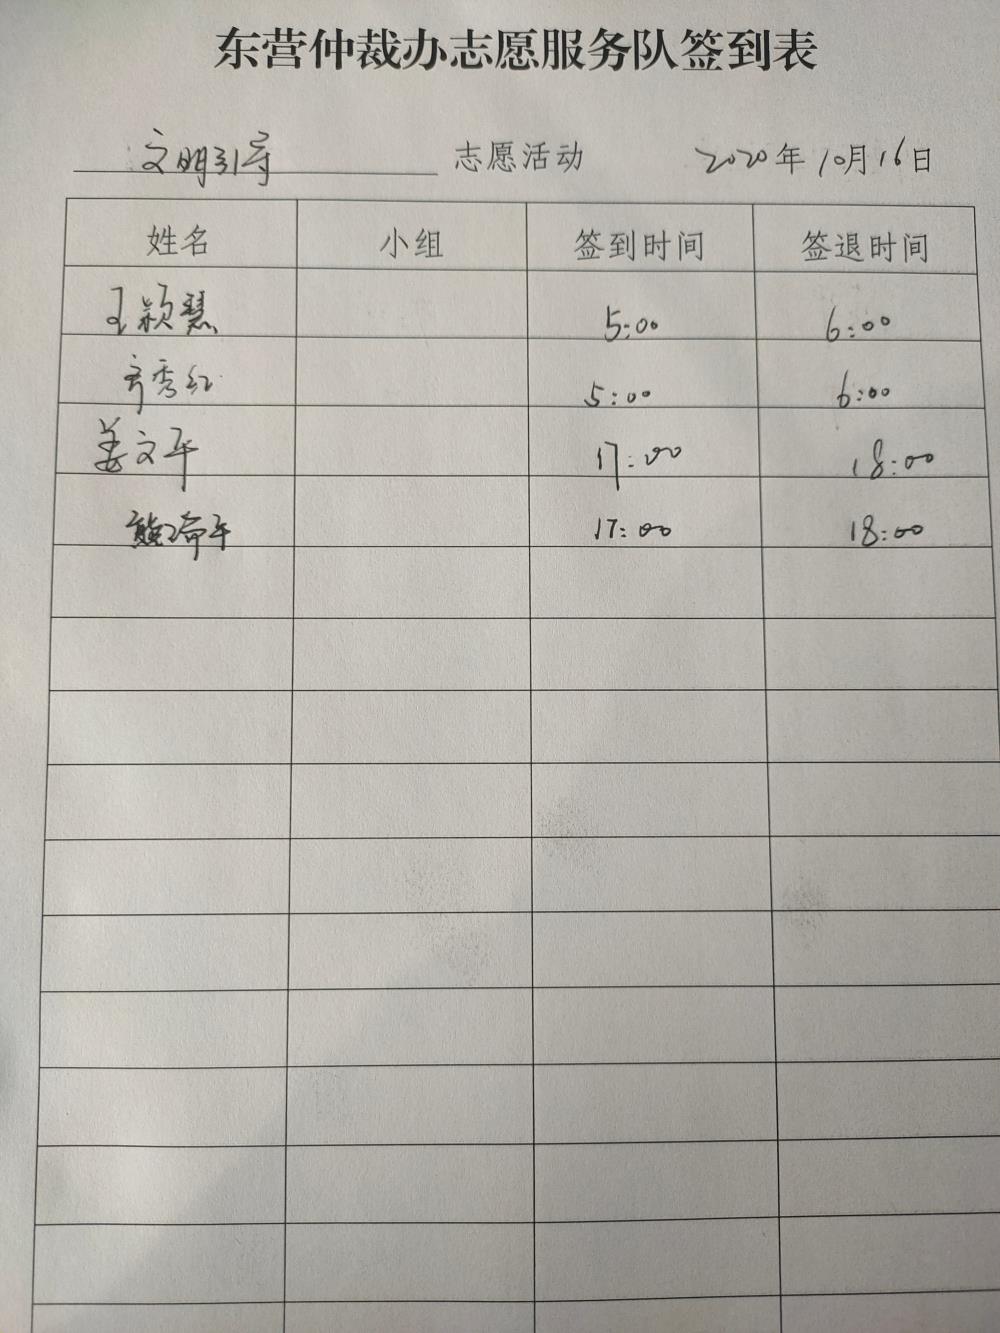 东营仲裁办志愿服务队签到表
文明引导 志愿活动 2020年10月16日
姓名 小组 签到时间 签退时间
王颖慧 5:00 6:00
齐秀红 5:00 6:00
姜文平 17:00 18:00
17:00 18:00